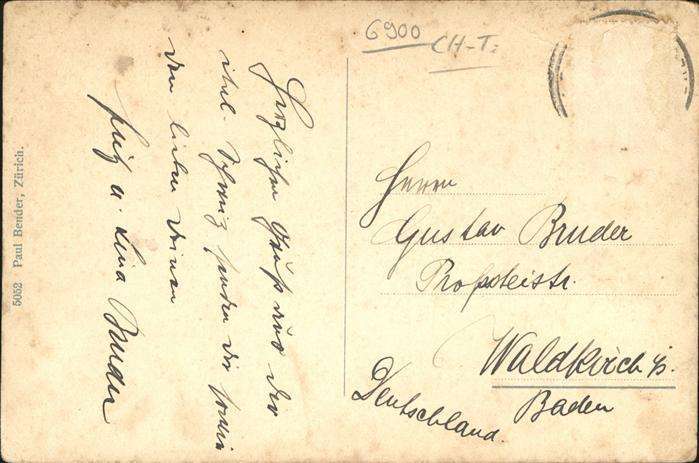 6900
CH-T:
Herrn
Gustav Bruder
Propsteistr.
Waldkirch i/s.
Baden
Deutschland.
Herzlichen Gruß aus der
ital. Schweiz senden dir sowie
den lieben Deinen
Fritz u. Lina Bruder
5052 Paul Bender, Zürich.